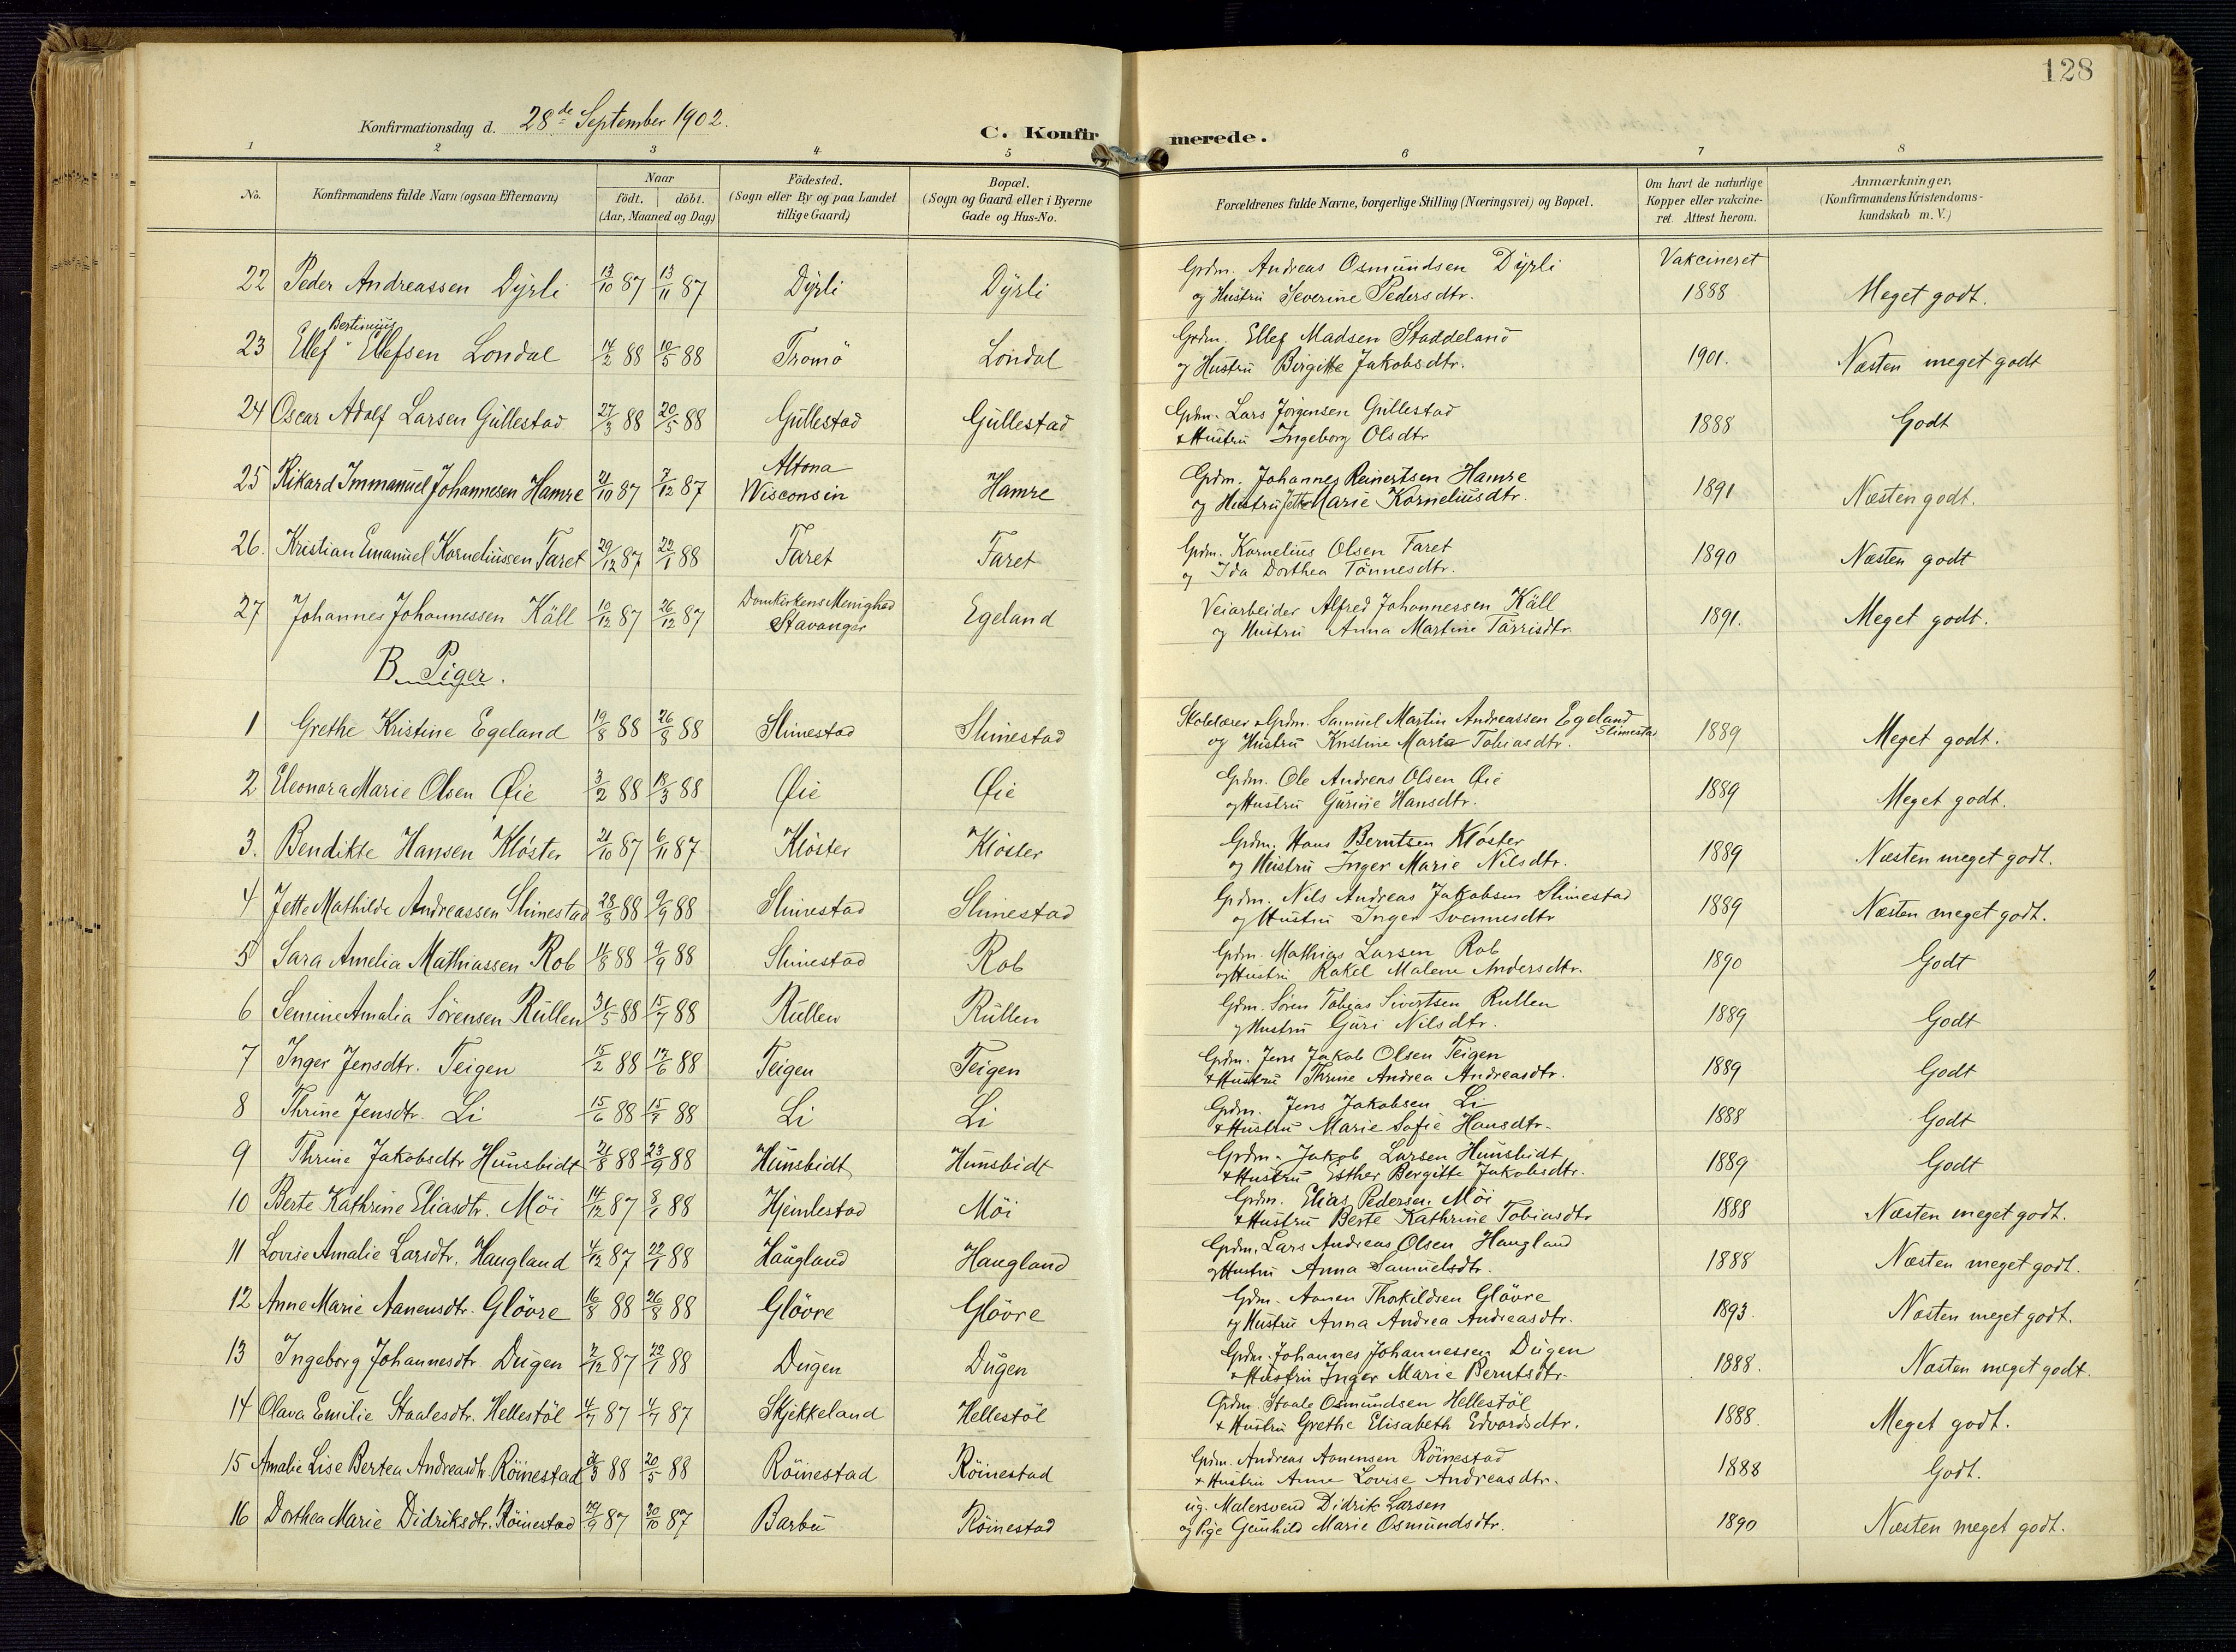 128
Konfirmationsdag d. 28de September 1902.
C. Konfirmerede.
1 2 3 4 5 6 7 8
No. | Konfirmandens fulde Navn (ogsaa Efternavn) | Naar födt. döbt. (Aar, Maaned og Dag) | Födested. (Sogn eller By og paa Landet tillige Gaard) | Bopæl. (Sogn og Gaard eller i Byerne Gade og Hus-No. | Forældrenes fulde Navne, borgerlige Stilling (Næringsvei) og Bopæl. | Om havt de naturlige Kopper eller vakcineret. Attest herom. | Anmærkninger, (Konfirmandens Kristendomskundskab m. V.)
22 Peder Andreassen Dyrli 13/10 87 13/11 87 Dyrli Dyrli Grdm. Andreas Osmundsen Dyrli og Hustru Severine Pedersdtr. Vakcineret 1888 Meget godt.
23 Ellef Bertinius Ellefsen Londal 14/2 88 10/5 88 Tromö Londal Grdm. Ellef Madsen Staddeland og Hustru Birgitte Jakobsdtr. 1901. Næsten meget godt
24 Oscar Adolf Larsen Gullestad 27/3 88 20/5 88 Gullestad Gullestad Grdm. Lars Jörgensen Gullestad & Hustru Ingeborg Olsdtr 1888 Godt
25 Rikard Immanuel Johannesen Hamre 21/10 87 7/12 87 Altona Wisconsin Hamre Grdm. Johannes Reinertsen Hamre og Hustru Jette Marie Korneliusdtr. 1891 Næsten godt.
26. Kristian Emanuel Korneliussen Faret 29/12 87 22/1 88 Faret Faret Grdm. Kornelius Olsen Faret og Ida Dorthea Tönnesdtr. 1890 Næsten godt
27 Johannes Johannessen Käll 10/12 87 26/12 87 Domkirkens Menighed Stavanger Egeland Veiarbeider Alfred Johannessen Käll og Hustru Anna Martine Tarrisdtr. 1891. Meget godt.
B. Piger.
1 Grethe Kristine Egeland 19/8 88 26/8 88 Slimestad Slimestad Skolelærer & Grdm. Samuel Martin Andreassen Egeland Slimestad og Hustru Kristine Marta Tobiasdtr. 1889 Meget godt.
2 Eleonora Marie Olsen Øie 3/2 88 18/3 88 Øie Øie Grdm. Ole Andreas Olsen Øie og Hustru Gurine Hansdtr. 1889 Meget godt.
3. Bendikte Hansen Klöster 21/10 87 6/11 87 Klöster Klöster Grdm. Hans Berntsen Klöster og Hustru Inger Marie Nilsdtr. 1889 Næsten meget godt.
4 Jette Mathilde Andreassen Slimestad 28/8 88 9/9 88 Slimestad Slimestad Grdm. Nils Andreas Jakobsen Slimestad og Hustru Inger Svennesdtr 1889 Næsten meget godt.
5 Sara Amelia Mathiassen Rob 11/8 88 9/9 88 Slimestad Rob Grdm. Mathias Larsen Rob og Hustru Rakel Malene Andersdtr. 1890 Godt
6 Semine Amalia Sörensen Rullen 31/5 88 15/7 88 Rullen Rullen Grdm. Sören Tobias Sivertsen Rullen og Hustru Guri Nilsdtr. 1889 Godt
7 Inger Jensdtr. Teigen 15/2 88 17/6 88 Teigen Teigen Grdm. Jens Jakob Olsen Teigen & Hustru Thrine Andrea Andreasdtr. 1889 Godt
8 Thrine Jensdtr. Li 15/6 88 15/7 88 Li Li Grdm. Jens Jakobsen Li & Hustru Marie Sofie Hansdtr. 1888 Godt
9 Thrine Jakobsdtr Hunsbidt 21/8 88 23/9 88 Hunsbidt Hunsbidt Grdm. Jakob Larsen Hunsbidt & Hustru Esther Bergitte Jakobsdtr. 1889 Godt
10 Berte Kathrine Eliasdtr. Möi 14/12 87 8/1 88 Hjemlestad Möi Grdm. Elias Pedersen Möi & Hustru Berte Kathrine Tobiasdtr 1888 Næsten meget godt.
11 Lovise Amalie Larsdtr. Haugland 4/12 87 22/1 88 Haugland Haugland Grdm. Lars Andreas Olsen Haugland og Hustru Anna Samuelsdtr. 1888 Næsten meget godt.
12 Anne Marie Aanensdtr. Glövre 16/8 88 26/8 88 Glövre Glövre Grdm. Aanen Thorkildsen Glövre og Hustru Anna Andrea Andreasdtr. 1893. Næsten meget godt.
13 Ingeborg Johannesdtr. Dugen 2/12 87 22/1 88 Dugen Dugen Grdm. Johannes Johannessen Dugen & Hustru Inger Marie Berntsdtr. 1888. Næsten meget godt.
14 Olava Emilie Staalesdtr. Hellestöl 4/7 87 4/7 87 Skjekkeland Hellestöl Grdm. Staale Osmundsen Hellestöl & Hustru Grethe Elisabeth Edvardsdtr. 1888. Meget godt.
15 Amalie Lise Bertea Andreasdtr. Röinestad 21/3 88 20/5 88 Röinestad Röinestad Grdm. Andreas Aanensen Röinestad & Hustru Anne Lovise Andreasdtr. 1888 Godt.
16 Dorthea Marie Didriksdtr. Röinestad 29/9 87 30/10 87 Barbu Röinestad ug. Malersvend Didrik Larsen og Pige Gunhild Marie Osmundsdtr. 1890 Næsten meget godt.